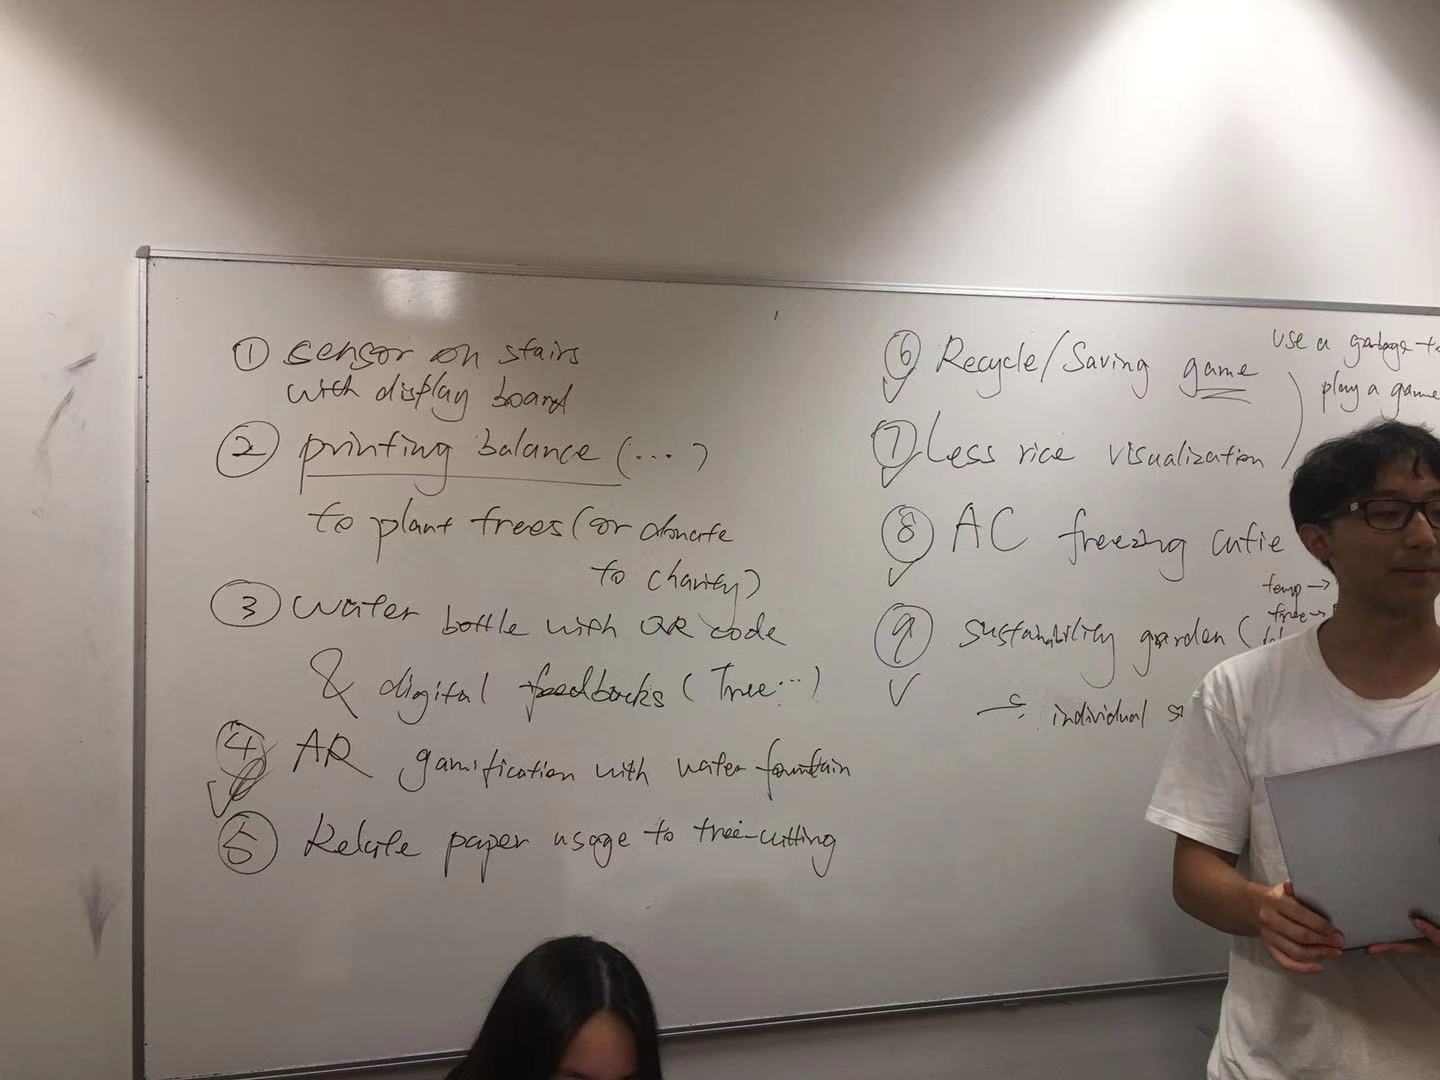 ① sensor on stairs
with display board
② printing balance (...)
to plant trees (or donate
to charity)
③ water bottle with QR code
& digital feedbacks (Tree...)
④ AR gamification with water fountain
⑤ Relate paper usage to tree-cutting
⑥ Recycle/Saving game
use a garbage to
play a game
⑦ Less rice visualization
⑧ AC freezing cutie
temp →
tree →
⑨ sustainability garden (
→ individual